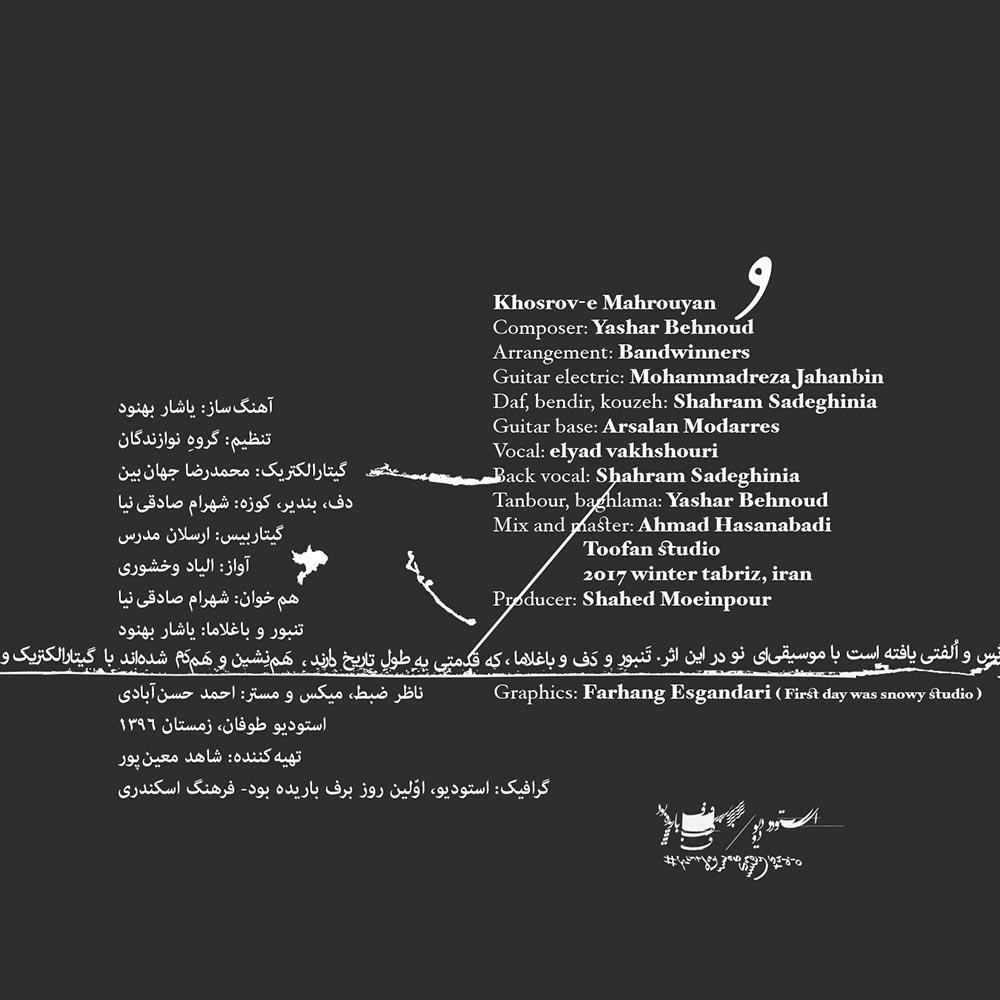 و
Khosrov-e Mahrouyan
Composer: Yashar Behnoud
Arrangement: Bandwinners
Guitar electric: Mohammadreza Jahanbin
Daf, bendir, kouzeh: Shahram Sadeghinia
Guitar base: Arsalan Modarres
Vocal: elyad vakhshouri
Back vocal: Shahram Sadeghinia
Tanbour, baghlama: Yashar Behnoud
Mix and master: Ahmad Hasanabadi
Toofan studio
2017 winter tabriz, iran
Producer: Shahed Moeinpour
آهنگ‌ساز: یاشار بهنود
تنظیم: گروهِ نوازندگان
گیتارالکتریک: محمدرضا جهان‌بین
دف، بندیر، کوزه: شهرام صادقی‌نیا
گیتاربیس: ارسلان مدرس
آواز: الیاد وخشوری
هم‌خوان: شهرام صادقی‌نیا
تنبور و باغلاما: یاشار بهنود
و اُلفتی یافته است با موسیقی‌ای نو در این اثر. تَنبور و دَف و باغلاما، که قدمتی به طولِ تاریخ دارند، هَم‌نِشین و هَم‌دَم شده‌اند با گیتارالکتریک و
Graphics: Farhang Esgandari ( First day was snowy studio )
ناظر ضبط، میکس و مستر: احمد حسن‌آبادی
استودیو طوفان، زمستان ۱۳۹۶
تهیه‌کننده: شاهد معین‌پور
گرافیک: استودیو، اوّلین روز برف باریده بود- فرهنگ اسکندری